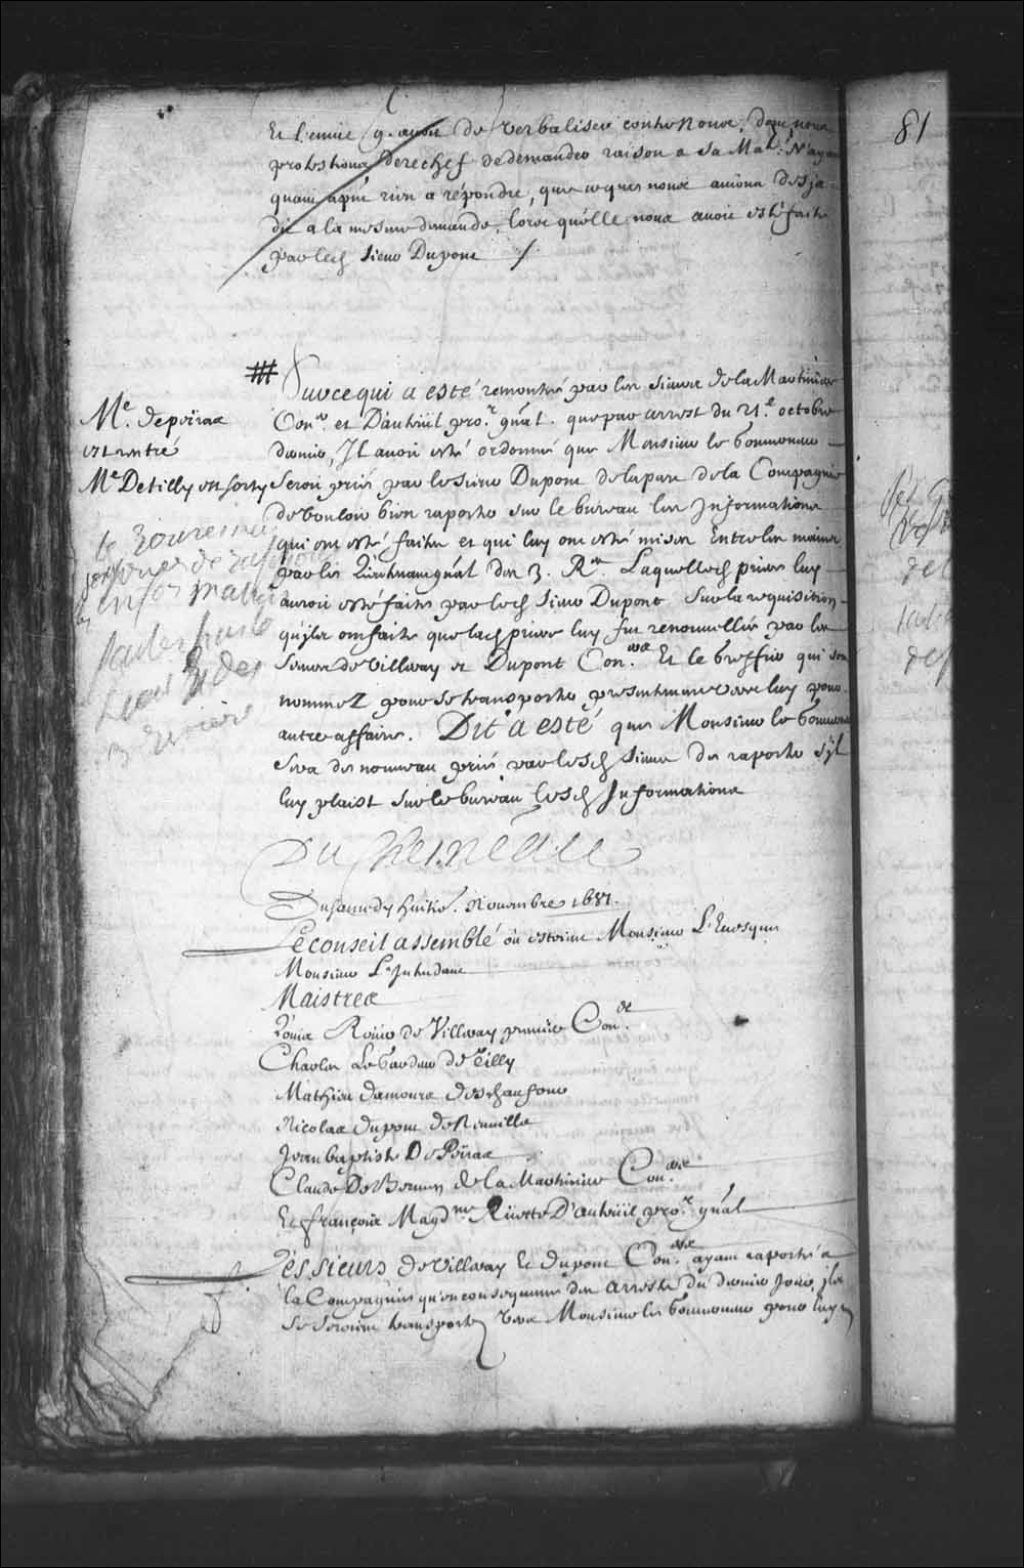 Et l'enuie q. auoit de verbaliser contre Nous, dont nous
protestions derechef de demander raison a sa Ma.té N'ayant
quant apnt rien a répondre, que ce que nous auions desja
dit a la mesme demande, lorsqu'elle nous auoit esté faite
par led Sieur Dupont
81
Sur ce qui a esté remontré par les Sieurs de la Martiniere
Con.er et Dauteüil pro.r gnal. que par arrest du 21.e octobre
dernier, Il auoit esté ordonné que Monsieur le Gouuerneur
M.e depeiras
est entré
M.e De tilly est sorty
Seroit prié par le Sieur Dupont de la part de la Compagnie
de vouloir bien raporter sur le bureau les Informations
qui ont esté faites et qui luy ont esté mises Entre les mains
par le Lieutenant gnal des 3. R.es Laquelle priere luy
auroit esté faite par led Sieur Dupont Sur la requisition
qu'ils ont faite que lad priere luy fut renouuellée par les
Sieurs de Villeray et Dupont Con.ers Et le Greffier qui sont
nommez pour se transporter presentement vers luy pour
autre affaire. Dit a esté que Monsieur le Gouuerneur
Sera de nouueau prié par lesd Sieurs de raporter s'jl
luy plaist sur le bureau lesd Informations
Du Chesneau
Du samedy huit.e Nouembre 1681.
Le conseil assemblé où estoient Monsieur L'Euesque
Monsieur L'Intendant
Maistres
Loüis Roüer de Villeray premier Con.er
Charles Le Gardeur de Tilly
Mathieu damours deschaufour
Nicolas dupont de Neuuille
Jean baptiste De Peiras
Claude De Bermen de la Martiniere Con.ers
Et françois Magd.ne Rüette D'auteüil pro.r gnal
Les sieurs de Villeray Et dupont Con.ers ayant raporté a
la Compagnie qu'en consequence des arrests du dernier jour, jls
se seroient transportez vers Monsieur le Gouuerneur pour luy